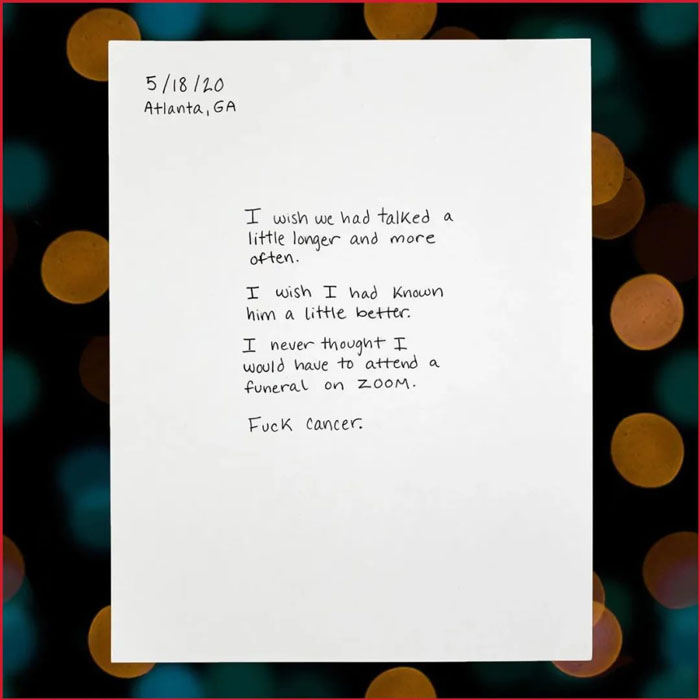 5/18/20
Atlanta, GA
I wish we had talked a
little longer and more
often.
I wish I had known
him a little better.
I never thought I
would have to attend a
funeral on ZOOM.
Fuck cancer.